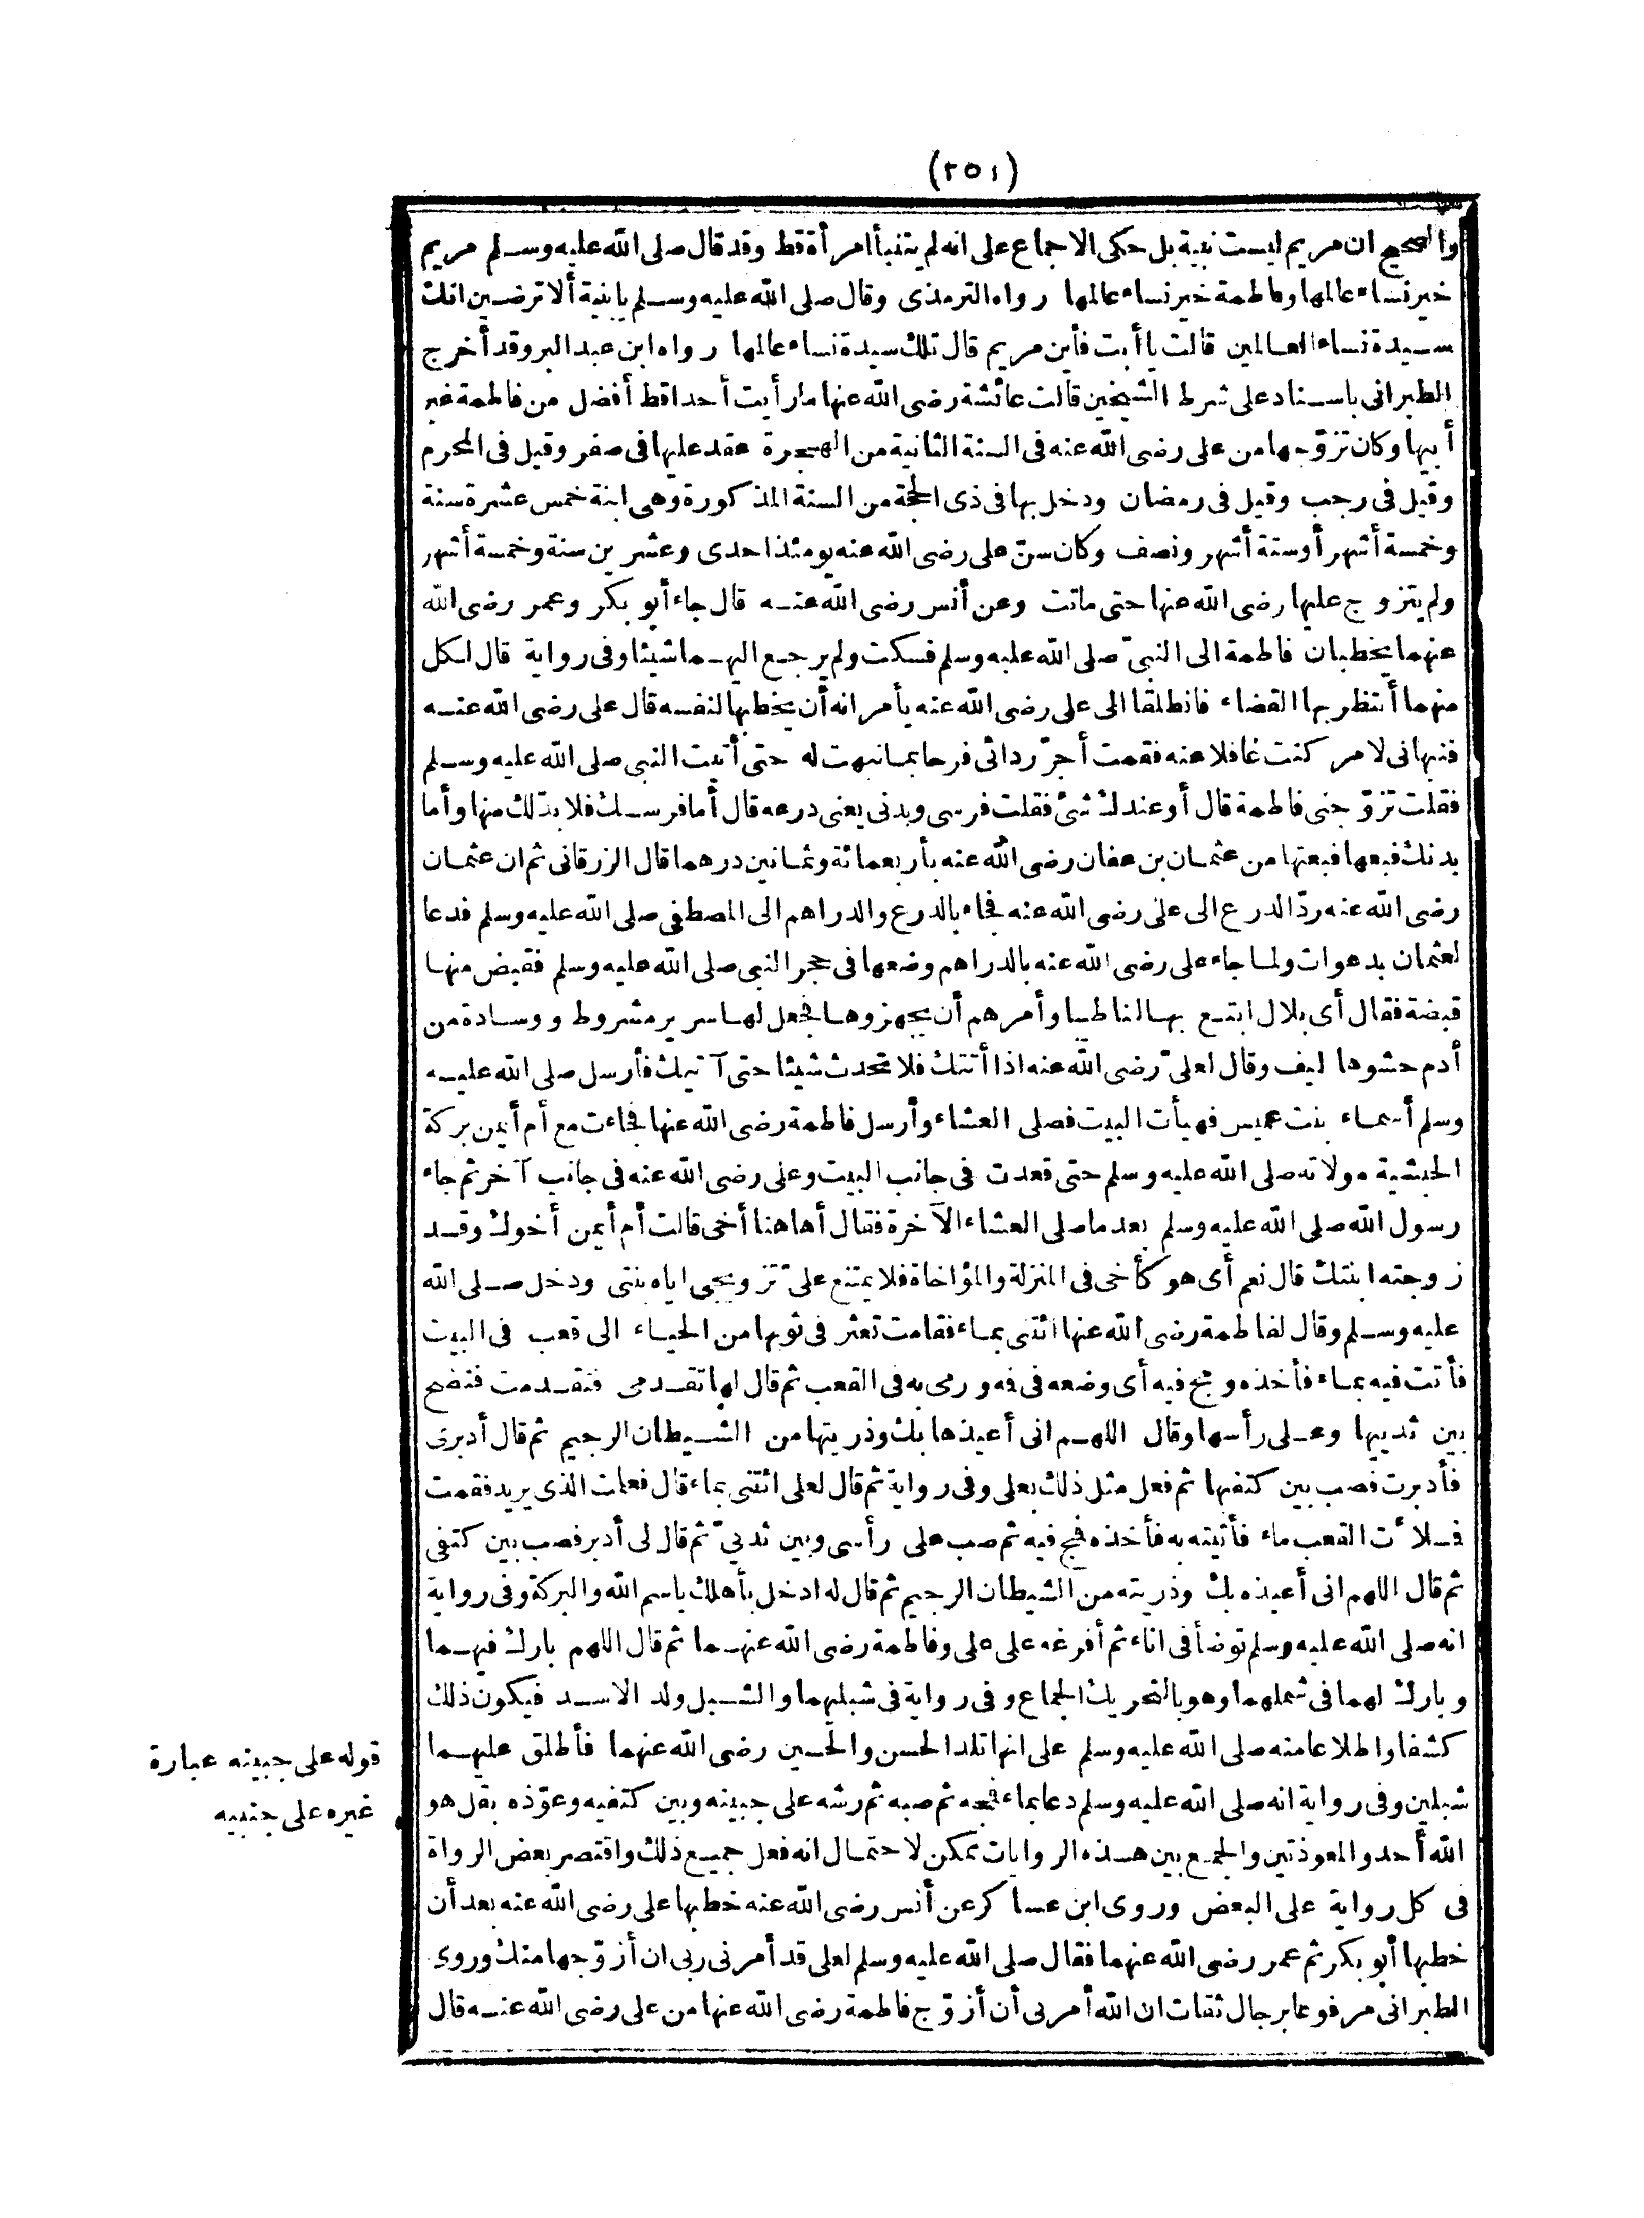 (٢٥١)
والصحيح ان مريم ليست نبية بل حكى الاجماع على انه لم يتنبأ امرأة قط وقد قال صلى الله عليه وسلم مريم
خير نساء عالمها وفاطمة خير نساء عالمها رواه الترمذى وقال صلى الله عليه وسلم يا بنية ألا ترضين انك
سيدة نساء العالمين قالت يا أبت فأين مريم قال تلك سيدة نساء عالمها رواه ابن عبد البر وقد أخرج
الطبرانى باسناد على شرط الشيخين قالت عائشة رضى الله عنها ما رأيت أحدا قط أفضل من فاطمة غير
أبيها وكان تزوّجها من على رضى الله عنه فى السنة الثانية من الهجرة عقد عليها فى صفر وقيل فى المحرم
وقيل فى رجب وقيل فى رمضان ودخل بها فى ذى الحجة من السنة المذكورة وهى ابنة خمس عشرة سنة
وخمسة أشهر أو ستة أشهر ونصف وكان سنّ على رضى الله عنه يومئذ احدى وعشرين سنة وخمسة أشهر
ولم يتزوج عليها رضى الله عنها حتى ماتت وعن أنس رضى الله عنه قال جاء أبو بكر وعمر رضى الله
عنهما يخطبان فاطمة الى النبىّ صلى الله عليه وسلم فسكت ولم يرجع اليهما شيئا وفى رواية قال لكل
منهما أنتظر بها القضاء فانطلقا الى على رضى الله عنه يأمرانه أن يخطبها لنفسه قال على رضى الله عنه
فنبهانى لامر كنت غافلا عنه فقمت أجرّ ردائى فرحا بما نبهت له حتى أتيت النبى صلى الله عليه وسلم
فقلت تزوّجنى فاطمة قال أو عندك شئ فقلت فرسى وبدنى يعنى درعه قال أما فرسك فلا بدّ لك منها وأما
بدنك فبعها فبعتها من عثمان بن عفان رضى الله عنه بأربعمائة وثمانين درهما قال الزرقانى ثم ان عثمان
رضى الله عنه ردّ الدرع الى على رضى الله عنه فجاء بالدرع والدراهم الى المصطفى صلى الله عليه وسلم فدعا
لعثمان بدعوات ولما جاء على رضى الله عنه بالدراهم وضعها فى حجر النبى صلى الله عليه وسلم فقبض منها
قبضة فقال أى بلال ابتع بها لنا طيبا وأمرهم أن يجهزوها فجعل لها سرير مشروط ووسادة من
أدم حشوها ليف وقال لعلىّ رضى الله عنه اذا أتتك فلا تحدث شيئا حتى آتيك فأرسل صلى الله عليه
وسلم أسماء بنت عميس فهيأت البيت فصلى العشاء وأرسل فاطمة رضى الله عنها فجاءت مع أم أيمن بركة
الحبشية مولاته صلى الله عليه وسلم حتى قعدت فى جانب البيت وعلى رضى الله عنه فى جانب آخر ثم جاء
رسول الله صلى الله عليه وسلم بعد ما صلى العشاء الآخرة فقال أهاهنا أخى قالت أم أيمن أخوك وقد
زوجته ابنتك قال نعم أى هو كأخى فى المنزلة والمؤاخاة فلا يمتنع علىّ تزويجى اياه بنتى ودخل صلى الله
عليه وسلم وقال لفاطمة رضى الله عنها ائتنى بماء فقامت تعثر فى ثوبها من الحياء الى قعب فى البيت
فأتت فيه بماء فأخذه ومج فيه أى وضعه فى فمه ورمى به فى القعب ثم قال لها تقدمى فتقدمت فنضح
بين ثدييها وعلى رأسها وقال اللهم انى أعيذها بك وذريتها من الشيطان الرجيم ثم قال أدبرى
فأدبرت فصب بين كتفيها ثم فعل مثل ذلك بعلى وفى رواية ثم قال لعلى ائتنى بماء قال فعلمت الذى يريد فقمت
فملأت القعب ماء فأتيته به فأخذه فمج فيه ثم صب على رأسى وبين ثدىىّ ثم قال لى أدبر فصب بين كتفى
ثم قال اللهم انى أعيذه بك وذريته من الشيطان الرجيم ثم قال له ادخل بأهلك باسم الله والبركة وفى رواية
انه صلى الله عليه وسلم توضأ فى اناء ثم أفرغه على على وفاطمة رضى الله عنهما ثم قال اللهم بارك فيهما
وبارك لهما فى شملهما وهو بالتحريك الجماع وفى رواية فى شبليهما والشبل ولد الاسد فيكون ذلك
كشفا واطلاعا منه صلى الله عليه وسلم على انها تلد الحسن والحسين رضى الله عنهما فأطلق عليهما
شبلين وفى رواية انه صلى الله عليه وسلم دعا بماء فمجه ثم صبه ثم رشه على جبينه وبين كتفيه وعوّذه بقل هو
الله أحد والمعوذتين والجمع بين هذه الروايات ممكن لاحتمال انه فعل جميع ذلك واقتصر بعض الرواة
فى كل رواية على البعض وروى ابن عساكر عن أنس رضى الله عنه خطبها على رضى الله عنه بعد أن
خطبها أبو بكر ثم عمر رضى الله عنهما فقال صلى الله عليه وسلم لعلى قد أمرنى ربى ان أزوّجها منك وروى
الطبرانى مرفوعا برجال ثقات ان الله أمرنى أن أزوّج فاطمة رضى الله عنها من على رضى الله عنه قال
قوله على جبينه عبارة
غيره على جنبيه